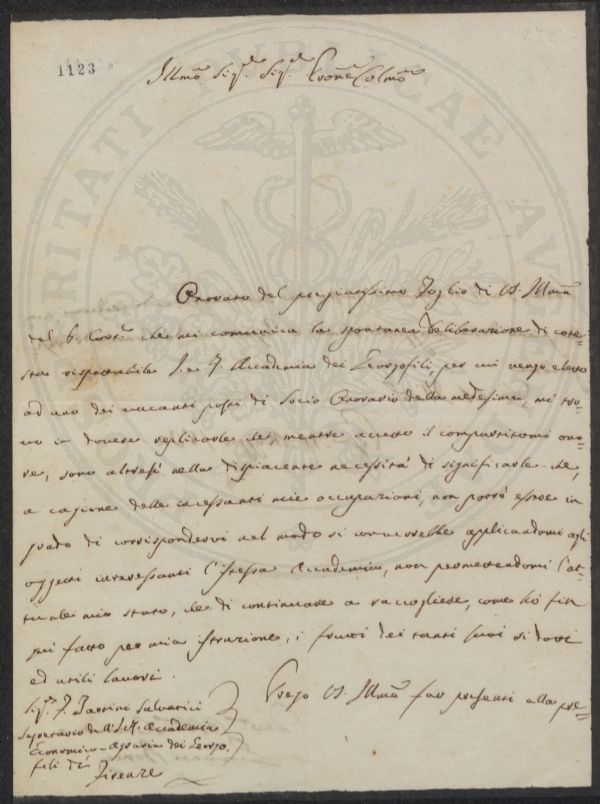 1123
Illmo Sigr. Sigr. Prone Colmo
Onorato del pregiatissimo Foglio di VS. Illma
del 6. Corre. che mi comunica la spontanea deliberazione di cote=
sta rispettabile I. e R. Accademia dei Georgofili, per cui vengo eletto
ad uno dei vacanti posti di Socio Onorario della medesima, mi tro=
vo in dovere replicarle che, mentre accetto il compartitomi ono=
re, sono altresì nella dispiacente necessità di significarle che,
a cagione delle incessanti mie occupazioni, non potrò essere in
grado di corrispondervi nel modo si converrebbe applicandomi agli
oggetti interessanti l'istessa Accademia, non permettendomi l'at=
tuale mio stato, che di continuare a raccogliere, come hò fin
qui fatto per mia istruzione, i frutti dei tanti suoi sì dotti
ed utili lavori.
Prego VS. Illma far presenti alla pre=
Sigr. Tartini Salvatici
Segretario dell'I. e R. Accademia
Economico-Agraria dei Georgo.
fili di
Firenze